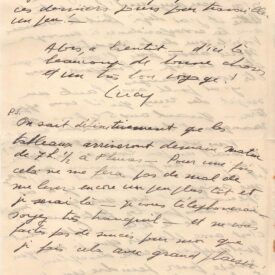 ces derniers jours pour travailler
un peu! —
Alors, à bientôt — d'ici là
beaucoup de bonnes choses
et un très bon voyage!
Lucy
P.S.
On sait définitivement que les
tableaux arriveront demain matin
de 7h ½ à 8 heures — Pour une fois
cela ne me fera pas de mal de
me lever encore un peu plus tôt et
je serai là — je vous téléphonerai
soyez très tranquille — et ne vous
faites pas de soucis pour moi que
je fais cela avec grand plaisir